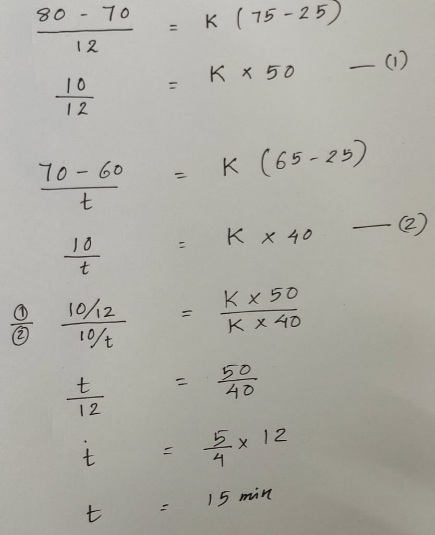 80 - 70 / 12 = K (75 - 25)
10 / 12 = K × 50 — (1)
70 - 60 / t = K (65 - 25)
10 / t = K × 40 — (2)
① / ② 10/12 / 10/t = K × 50 / K × 40
t / 12 = 50 / 40
t = 5 / 4 × 12
t = 15 min